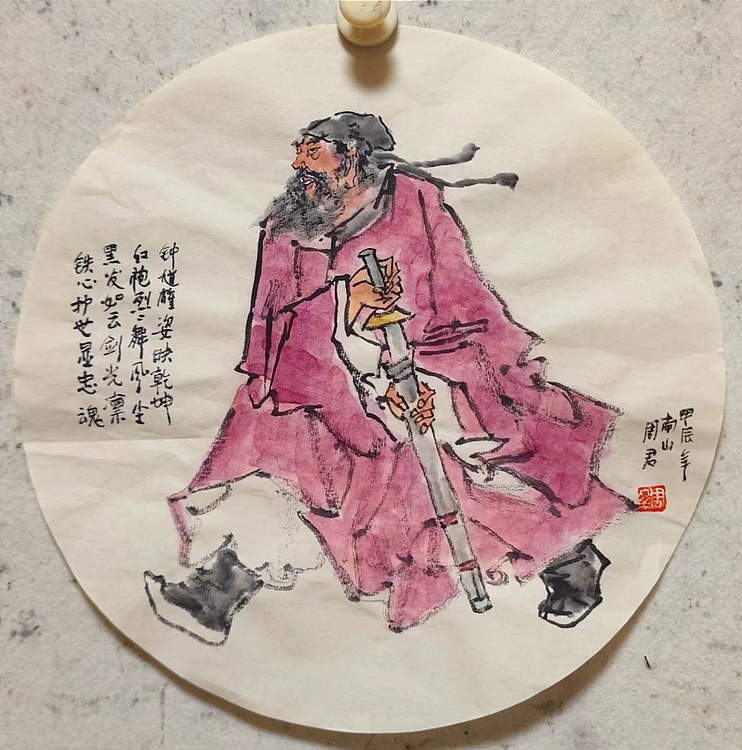 钟馗雄姿映乾坤
红袍烈々舞风尘
黑发如云剑光凛
铁心护世显忠魂
甲辰年
南山
周君